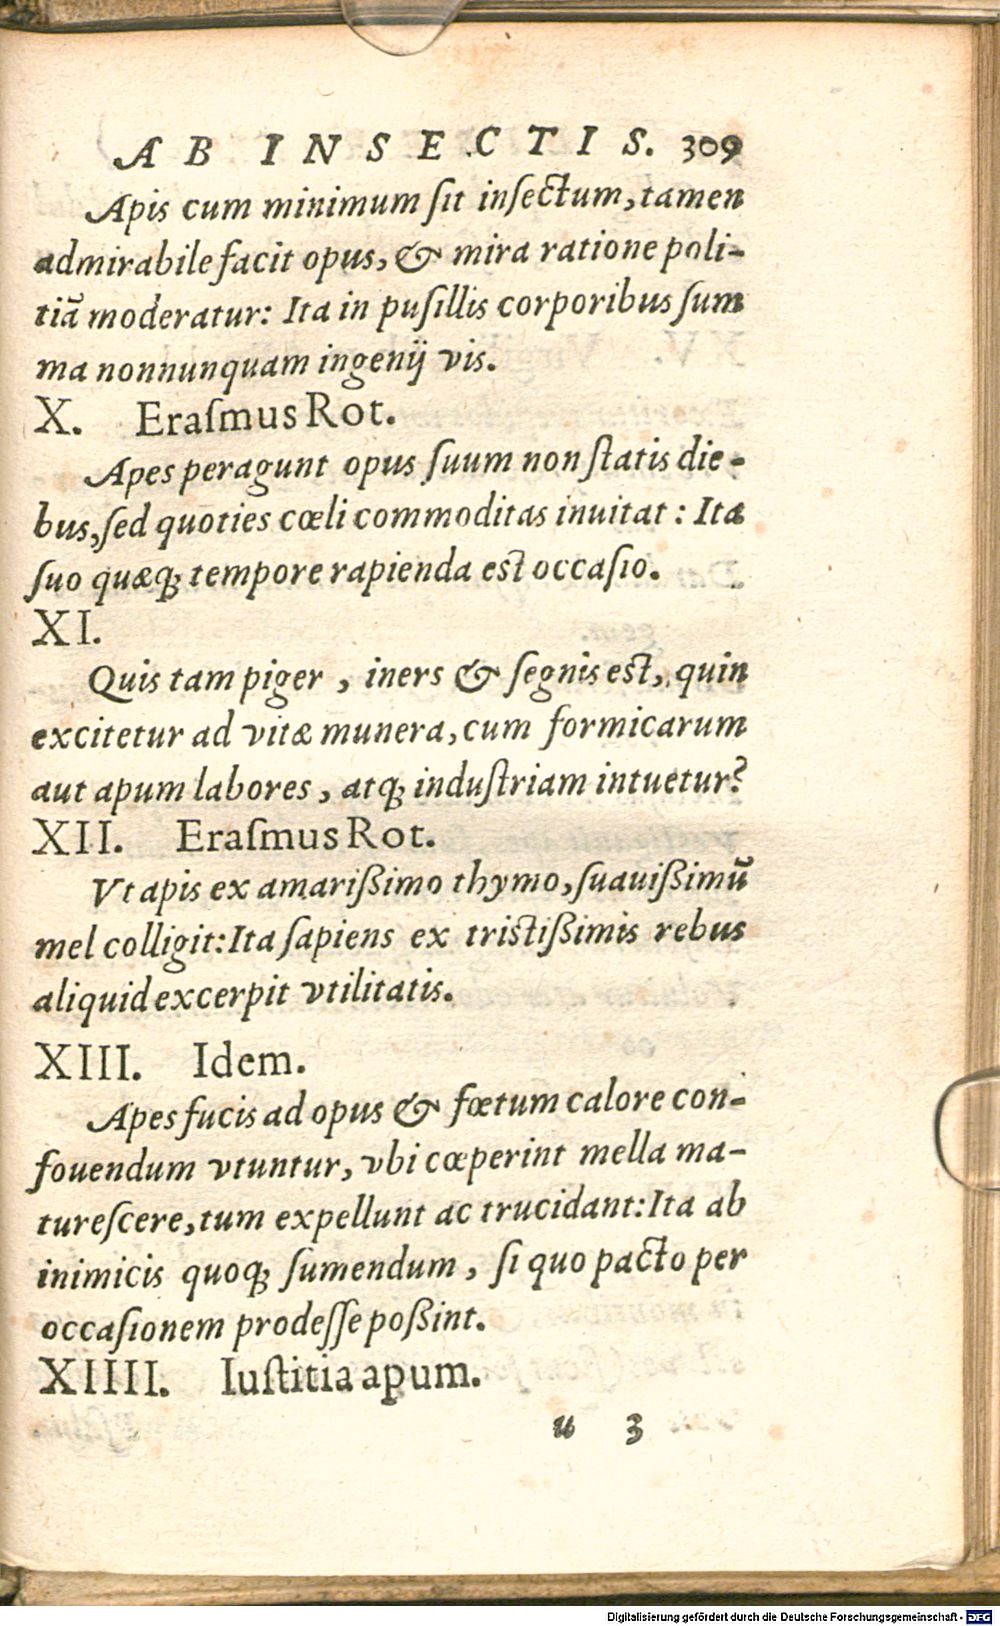 AB INSECTIS. 309
Apis cum minimum ſit inſectum, tamen
admirabile facit opus, & mira ratione poli-
tiā moderatur: Ita in puſillis corporibus ſum
ma nonnunquam ingenij vis.
X. Eraſmus Rot.
Apes peragunt opus ſuum non ſtatis die-
bus, ſed quoties cœli commoditas inuitat: Ita
ſuo quæq; tempore rapienda est occaſio.
XI.
Quis tam piger, iners & ſegnis est, quin
excitetur ad vitæ munera, cum formicarum
aut apum labores, atq; induſtriam intuetur?
XII. Eraſmus Rot.
Vt apis ex amarißimo thymo, ſuauißimū
mel colligit: Ita ſapiens ex tristißimis rebus
aliquid excerpit vtilitatis.
XIII. Idem.
Apes fucis ad opus & fœtum calore con-
fouendum vtuntur, vbi cœperint mella ma-
tureſcere, tum expellunt ac trucidant: Ita ab
inimicis quoq; ſumendum, ſi quo pacto per
occaſionem prodeſſe poßint.
XIIII. Iuſtitia apum.
u 3
Digitalisierung gefördert durch die Deutsche Forschungsgemeinschaft - DFG